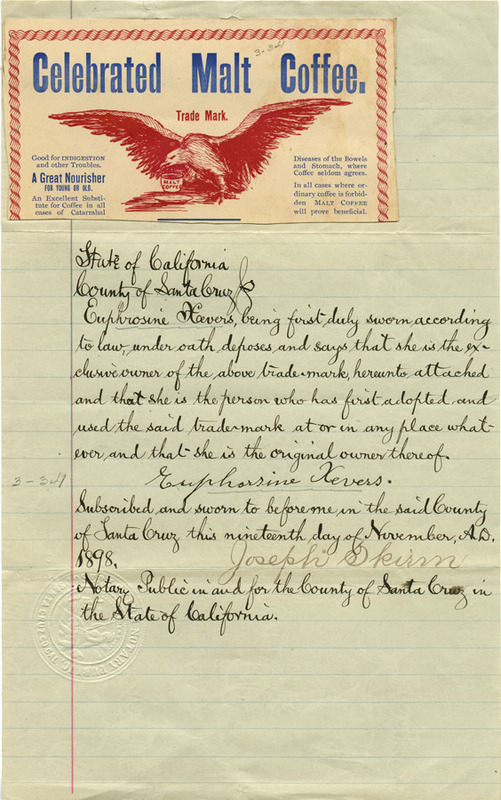 3-34
Celebrated Malt Coffee.
Trade Mark.
Good for INDIGESTION
and other Troubles.
A Great Nourisher
FOR YOUNG OR OLD.
An Excellent Substi-
tute for Coffee in all
cases of Catarrahal
MALT
COFFEE
Diseases of the Bowels
and Stomach, where
Coffee seldom agrees.
In all cases where or-
dinary coffee is forbid-
den MALT COFFEE
will prove beneficial.
State of California
County of Santa Cruz
Euphrosine Xevers, being first duly sworn according
to law, under oath deposes and says that she is the ex-
clusive owner of the above trade-mark, hereunto attached
and that she is the person who has first adopted and
used the said trade-mark at or in any place what-
ever, and that she is the original owner thereof.
Euphorsine Xevers.
3-34
Subscribed and sworn to before me, in the said County
of Santa Cruz this nineteenth day of November, A.D.
1898.
Joseph Skirm
Notary Public in and for the County of Santa Cruz in
the State of California.